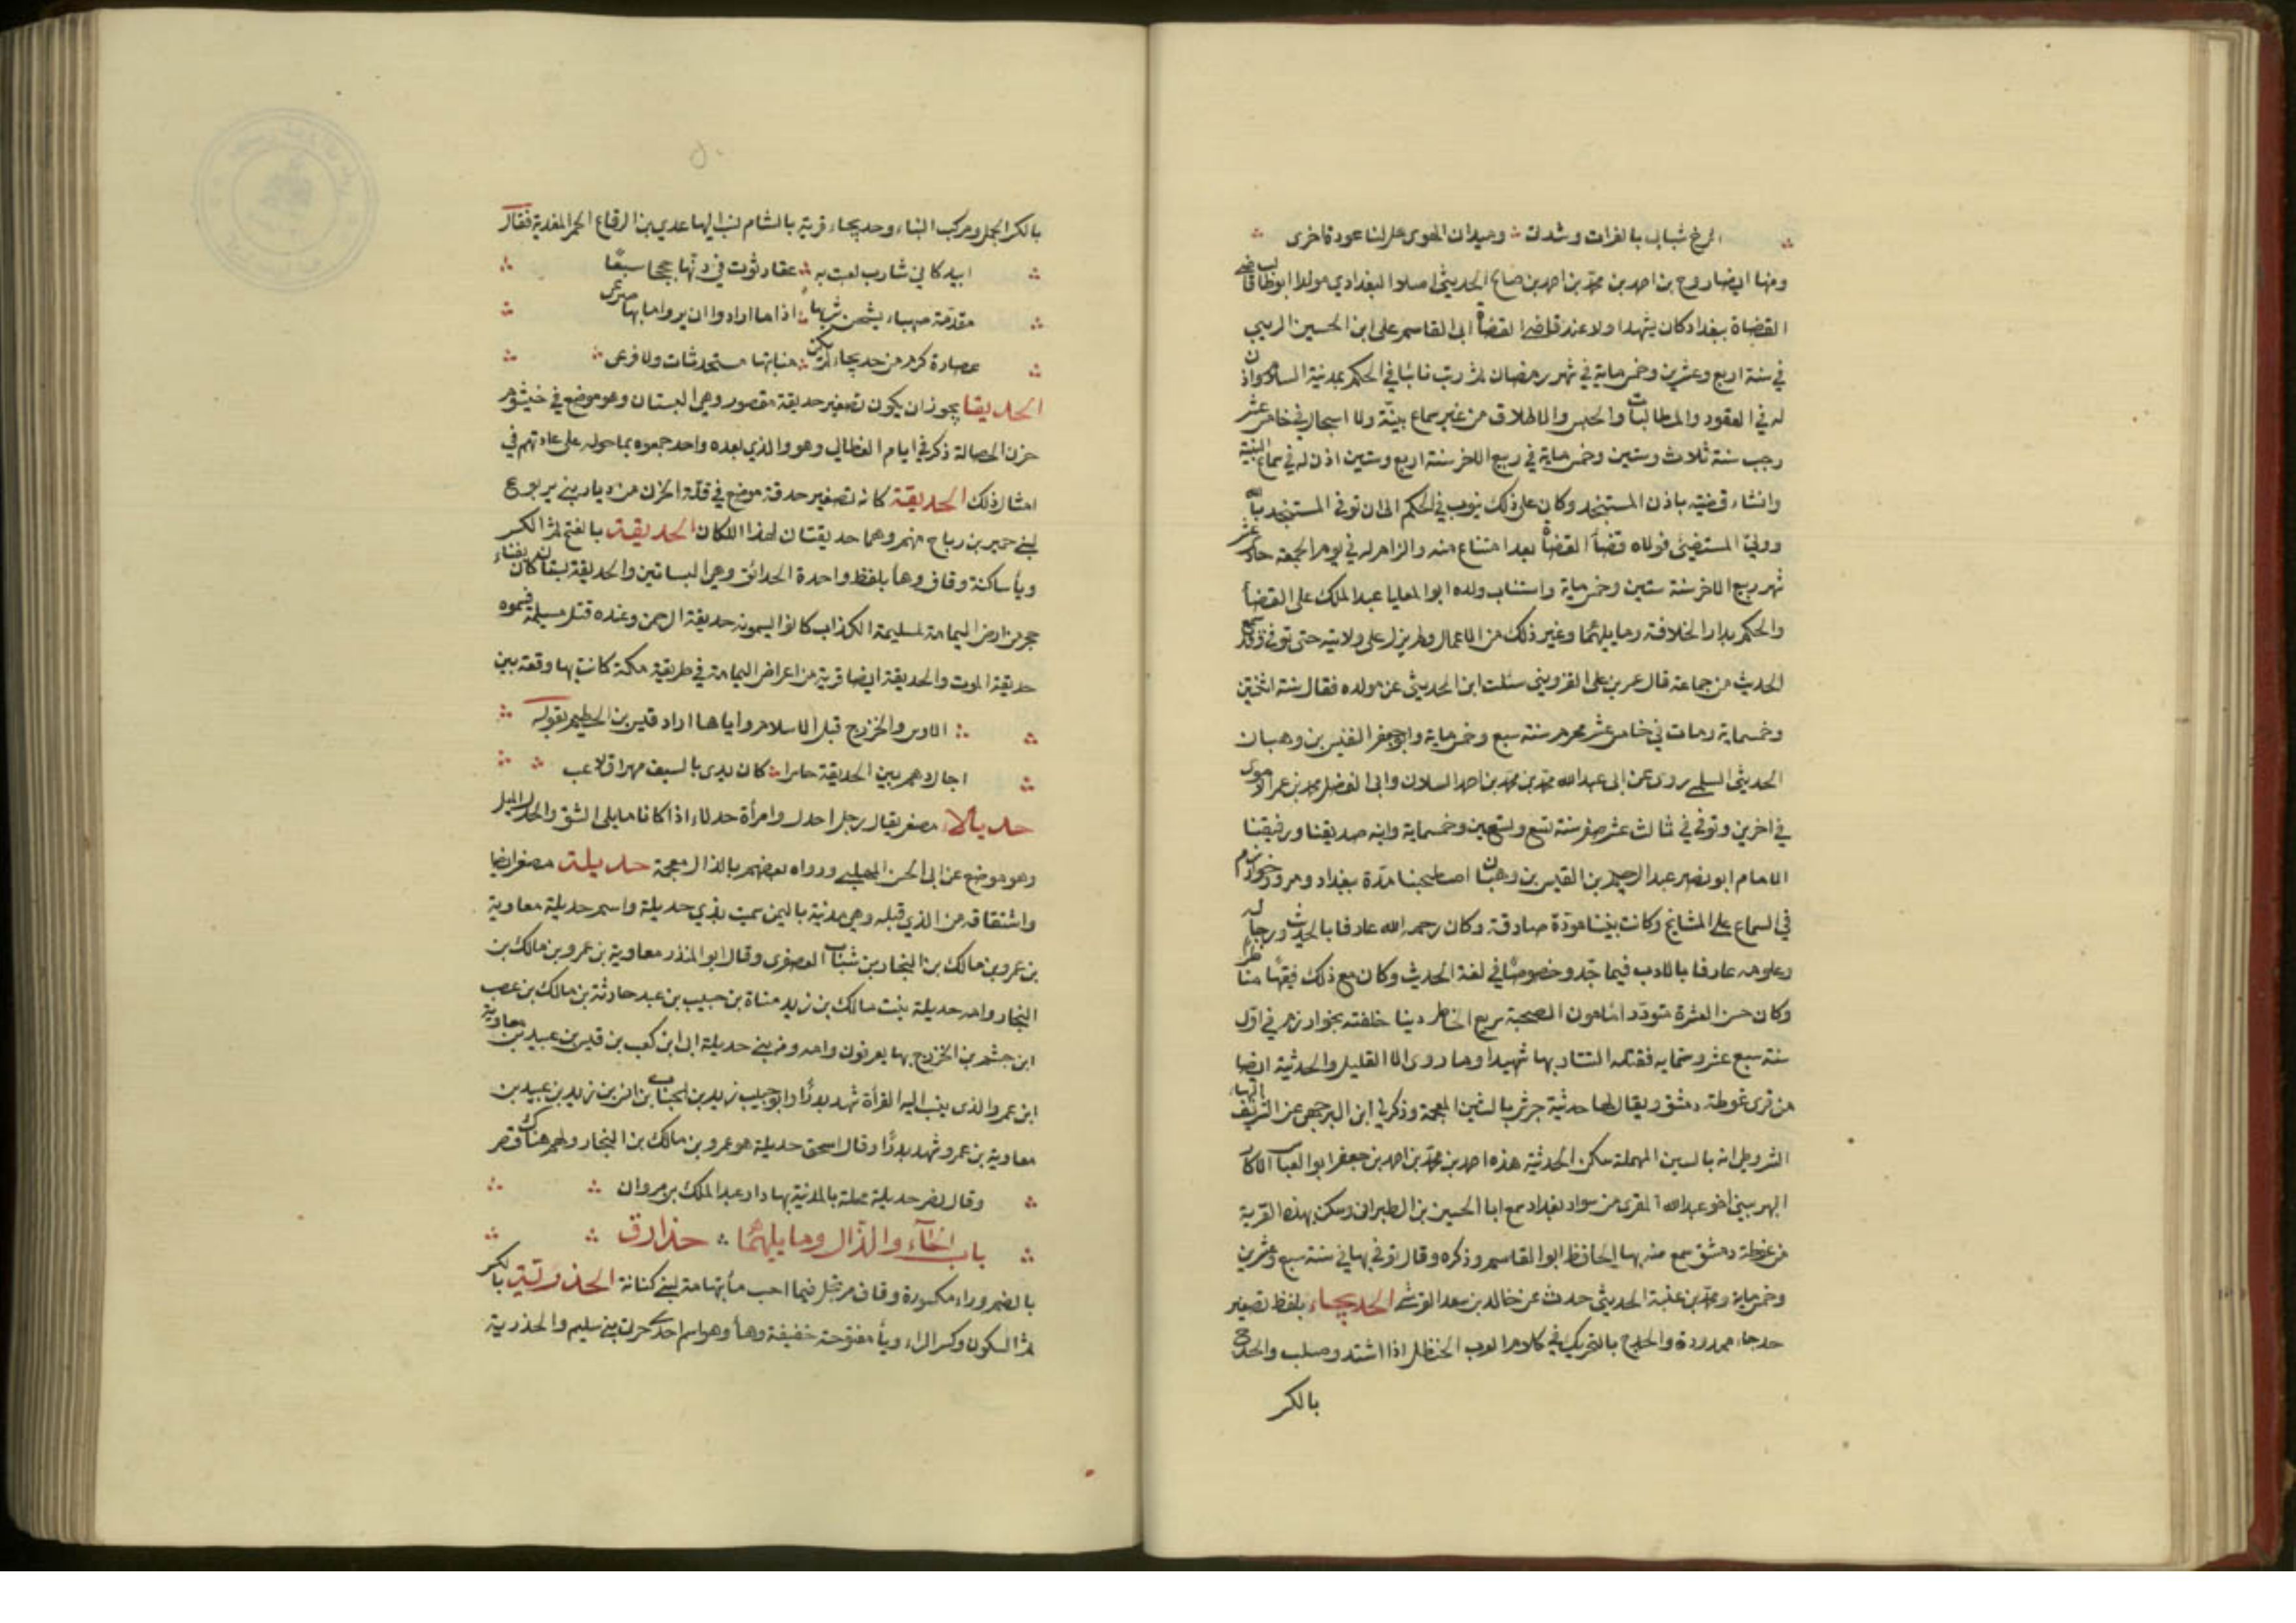 الرخ شباب بالفرات وشدت وميدان الهوى هل لنا عودة اخرى
ومنها ايضا روح بن احمد بن محمد بن احمد بن صالح الحديثى اصلا والبغدادي مولدا ابو طالب قاضى
القضاة ببغداد كان يشهد اولا عند قاضى القضاة ابى القاسم على ابن الحسين الزينبي
في سنة اربع وعشرين وخمس ماية في شهر رمضان ثم رتب نائبا في الحكم بمدينة السلام واذن
له في العقود والمطالبات والحبس والاطلاق من غير سماع بينة ولا اسجال في خامس عشر
رجب سنة ثلاث وستين وخمس ماية في ربيع الاخر سنة اربع وستين اذن له في سماع البينة
وانشاء قضيته باذن المستنجد وكان على ذلك ينوب في الحكم الى ان توفى المستنجد بالله
وولي المستضئ فولاه قضاء القضاة بعد امتناع منه والزام له في يوم الجمعة حادى عشر
شهر ربيع الاخر سنة ستين وخمس ماية واستناب ولده ابو المعليا عبد الملك على القضاء
والحكم بدار الخلافة وما يليهما وغير ذلك من الاعمال ولم يزل على ولايته حتى توفى وقد سمع
الحديث من جماعة قال عمر بن على القزويني سئلت ابن الحديثى عن مولده فقال سنة اثنتين
وخمسماية ومات في خامس عشر محرم سنة سبع وخمس ماية وابو جعفر النفيس بن وهبان
الحديثى السلمي روى عن ابى عبد الله محمد بن محمد بن احمد السلان وابى الفضل محمد بن عمر الاموى
في اخرين وتوفى في ثالث عشر صفر سنة تسع وتسعين وخمسماية وابنه صديقنا ورفيقنا
الامام ابو نصر عبد الرحيم بن القيس بن وهبان اصطحبنا مدة ببغداد ومرو وخوارزم
في السماع على المشائخ وكانت بيننا مودة صادقة وكان رحمه الله عارفا بالحديث ورجاله
وعلومه عارفا بالادب فيما جد وخصوصا في لغة الحديث وكان مع ذلك فقيها مناظرا
وكان حسن العشرة متوددا مامون الصحبة سريع الخاطر دينا خلفته بخوارزم في اول
سنة سبع عشر وستمايه فقتله التتار بها شهيدا وما روى الا القليل والحديثة ايضا
من قرى غوطة دمشق ويقال لها حديثة جرش بالشين المعجمة وذكر لي ابن البرجمي عن الشريف البهاء
الشروطى انه بالسين المهملة سكن الحديثة هذه احمد بن محمد بن احمد بن جعفر ابو العباس الاكار
النهر بينى اخو عبد الله المقرى من سواد بغداد سمع ابا الحسين بن الطبرانى وسكن بهذه القرية
من غوطة دمشق سمع منه بها الحافظ ابو القاسم وذكره وقال توفى بها في سنة سبع وعشرين
وخمس ماية ومحمد بن عنبة الحديثى حدث عن خالد بن سعد القرشى الحديجاء بلفظ تصغير
حدجاء ممدودة والحدج بالتحريك في كلام العرب الحنظل اذا اشتد وصلب والحدج
بالكر
بالكر الجمل ومركب النساء وحديجاء قرية بالشام نسب اليها عدي بن الرقاع الخمر المقدية فقال
اميد كاني شارب لعبت به عقار ثوت في دنها حججا سبعا
مقدمة صهباء يثخن شربها اذا ما ارادوا ان يروحوا بها صرعى
عصارة كرم من حديجاء لم يكن منابتها مستحدثات ولا فرعى
الحديقا يجوز ان يكون تصغير حديقة مقصور وهي البستان وهو موضع في خيشوم
حزن الخصالة ذكر في ايام العظالي وهو والذي بعده واحد جمعوه بما حوله على عادتهم في
امثال ذلك الحديقة كانه تصغير حدقة موضع في قلة الحزن من ديار بني يربوع
لبني حمير بن رباح منهم وهما حديقتان لهذا المكان الحديقة بالفتح ثم الكسر
ويأ ساكنة وقاف وهأ بلفظ واحدة الحدائق وهي البساتين والحديقة بستان كان بفناء
حجر من ارض اليمامة لمسليمة الكذاب كانوا يسمونه حديقة الرحمن وعنده قتل مسيلمة فسموه
حديقة الموت والحديقة ايضا قرية من اعراض اليمامة في طريقة مكة كانت بها وقعة بين
الاوس والخزرج قبل الاسلام واياها اراد قيس بن الخطيم بقوله
اجالدهم بين الحديقة حاسرا كان يدى بالسيف مهراق لاعب
حديالاء مصغر يقال رجل احدل وامرأة حدلاء اذا كانا مايلى الشق والحدل الميل
وهو موضع عن ابى الحسن المهلبي ورواه بعضهم بالذال معجمة حديلة مصغر ايضا
واشتقاقه من الذي قبله وهى مدينة باليمن سميت بذي حديلة واسم حديلة معاوية
بن عمرو بن مالك بن النجار بن شباب العصفرى وقال ابو المنذر معاوية بن عمرو بن مالك بن
النجار وامه حديلة بنت مالك بن زيد مناة بن حبيب بن عبد حارثة بن مالك بن عصب
ابن جشم بن الخزرج بها يعرفون وامه ومن بني حديلة ابى ابن كعب بن قيس بن عبيد بن معاوية
ابن عمر والذى ينسب اليه القرأة شهد بدرا وابو حبيب زيد بن الحباب بن انس بن زيد بن عبيد بن
معاوية بن عمرو شهد بدرا وقال اسحق حديلة هو عمرو بن مالك بن النجار ولهم هناك قصر
وقال نصر حديلة محلة بالمدينة بها دار عبد الملك بن مروان
باب الحآء والذال وما يليهما حذارق
بالضم وراء مكسورة وقاف مرتجل فيما احسب مأ بتهامة لبني كنانة الحذرية بالكسر
ثم السكون وكسر الراء ويأ مفتوحة خفيفة وهأ وهو اسم احدى حرت بني سليم والحذرية